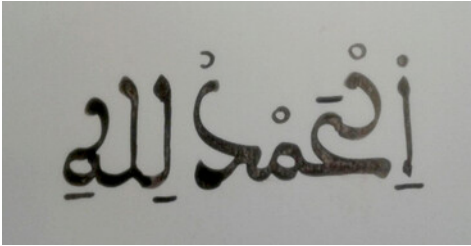 اِ۬لْحَمْدُ لِلهِ